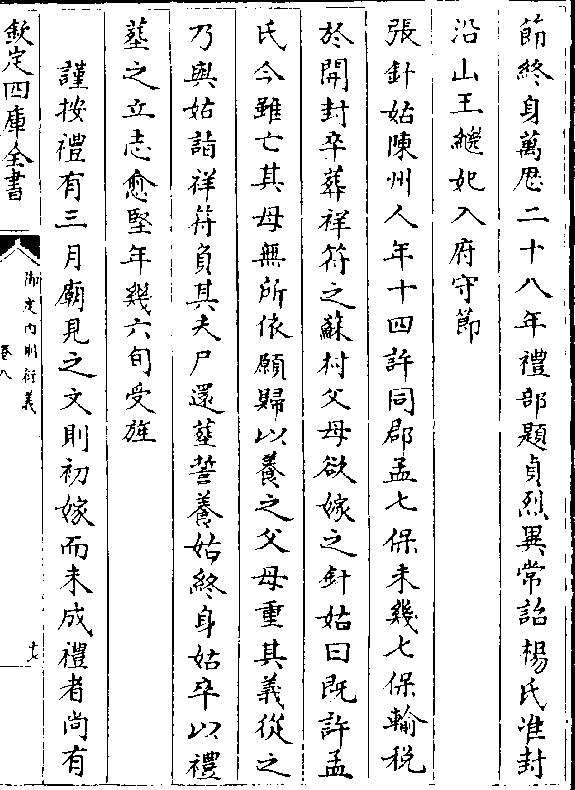 節終身萬厯二十八年禮部題貞烈異常詔楊氏准封
沿山王繼妃入府守節
張針姑陳州人年十四許同郡孟七保未幾七保輸税
於開封卒葬祥符之蘇村父母欲嫁之針姑曰既許孟
氏今雖亡其母無所依願歸以養之父母重其義從之
乃與姑詣祥符負其夫尸還塟誓養姑終身姑卒以禮
塟之立志愈堅年幾六旬受旌
謹按禮有三月廟見之文則初嫁而未成禮者尚有
欽定四庫全書
御定内則衍義
卷八
十七